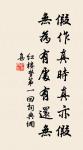 假作真時真亦假
無為有處有還無
紅樓夢第一回詞典網
集